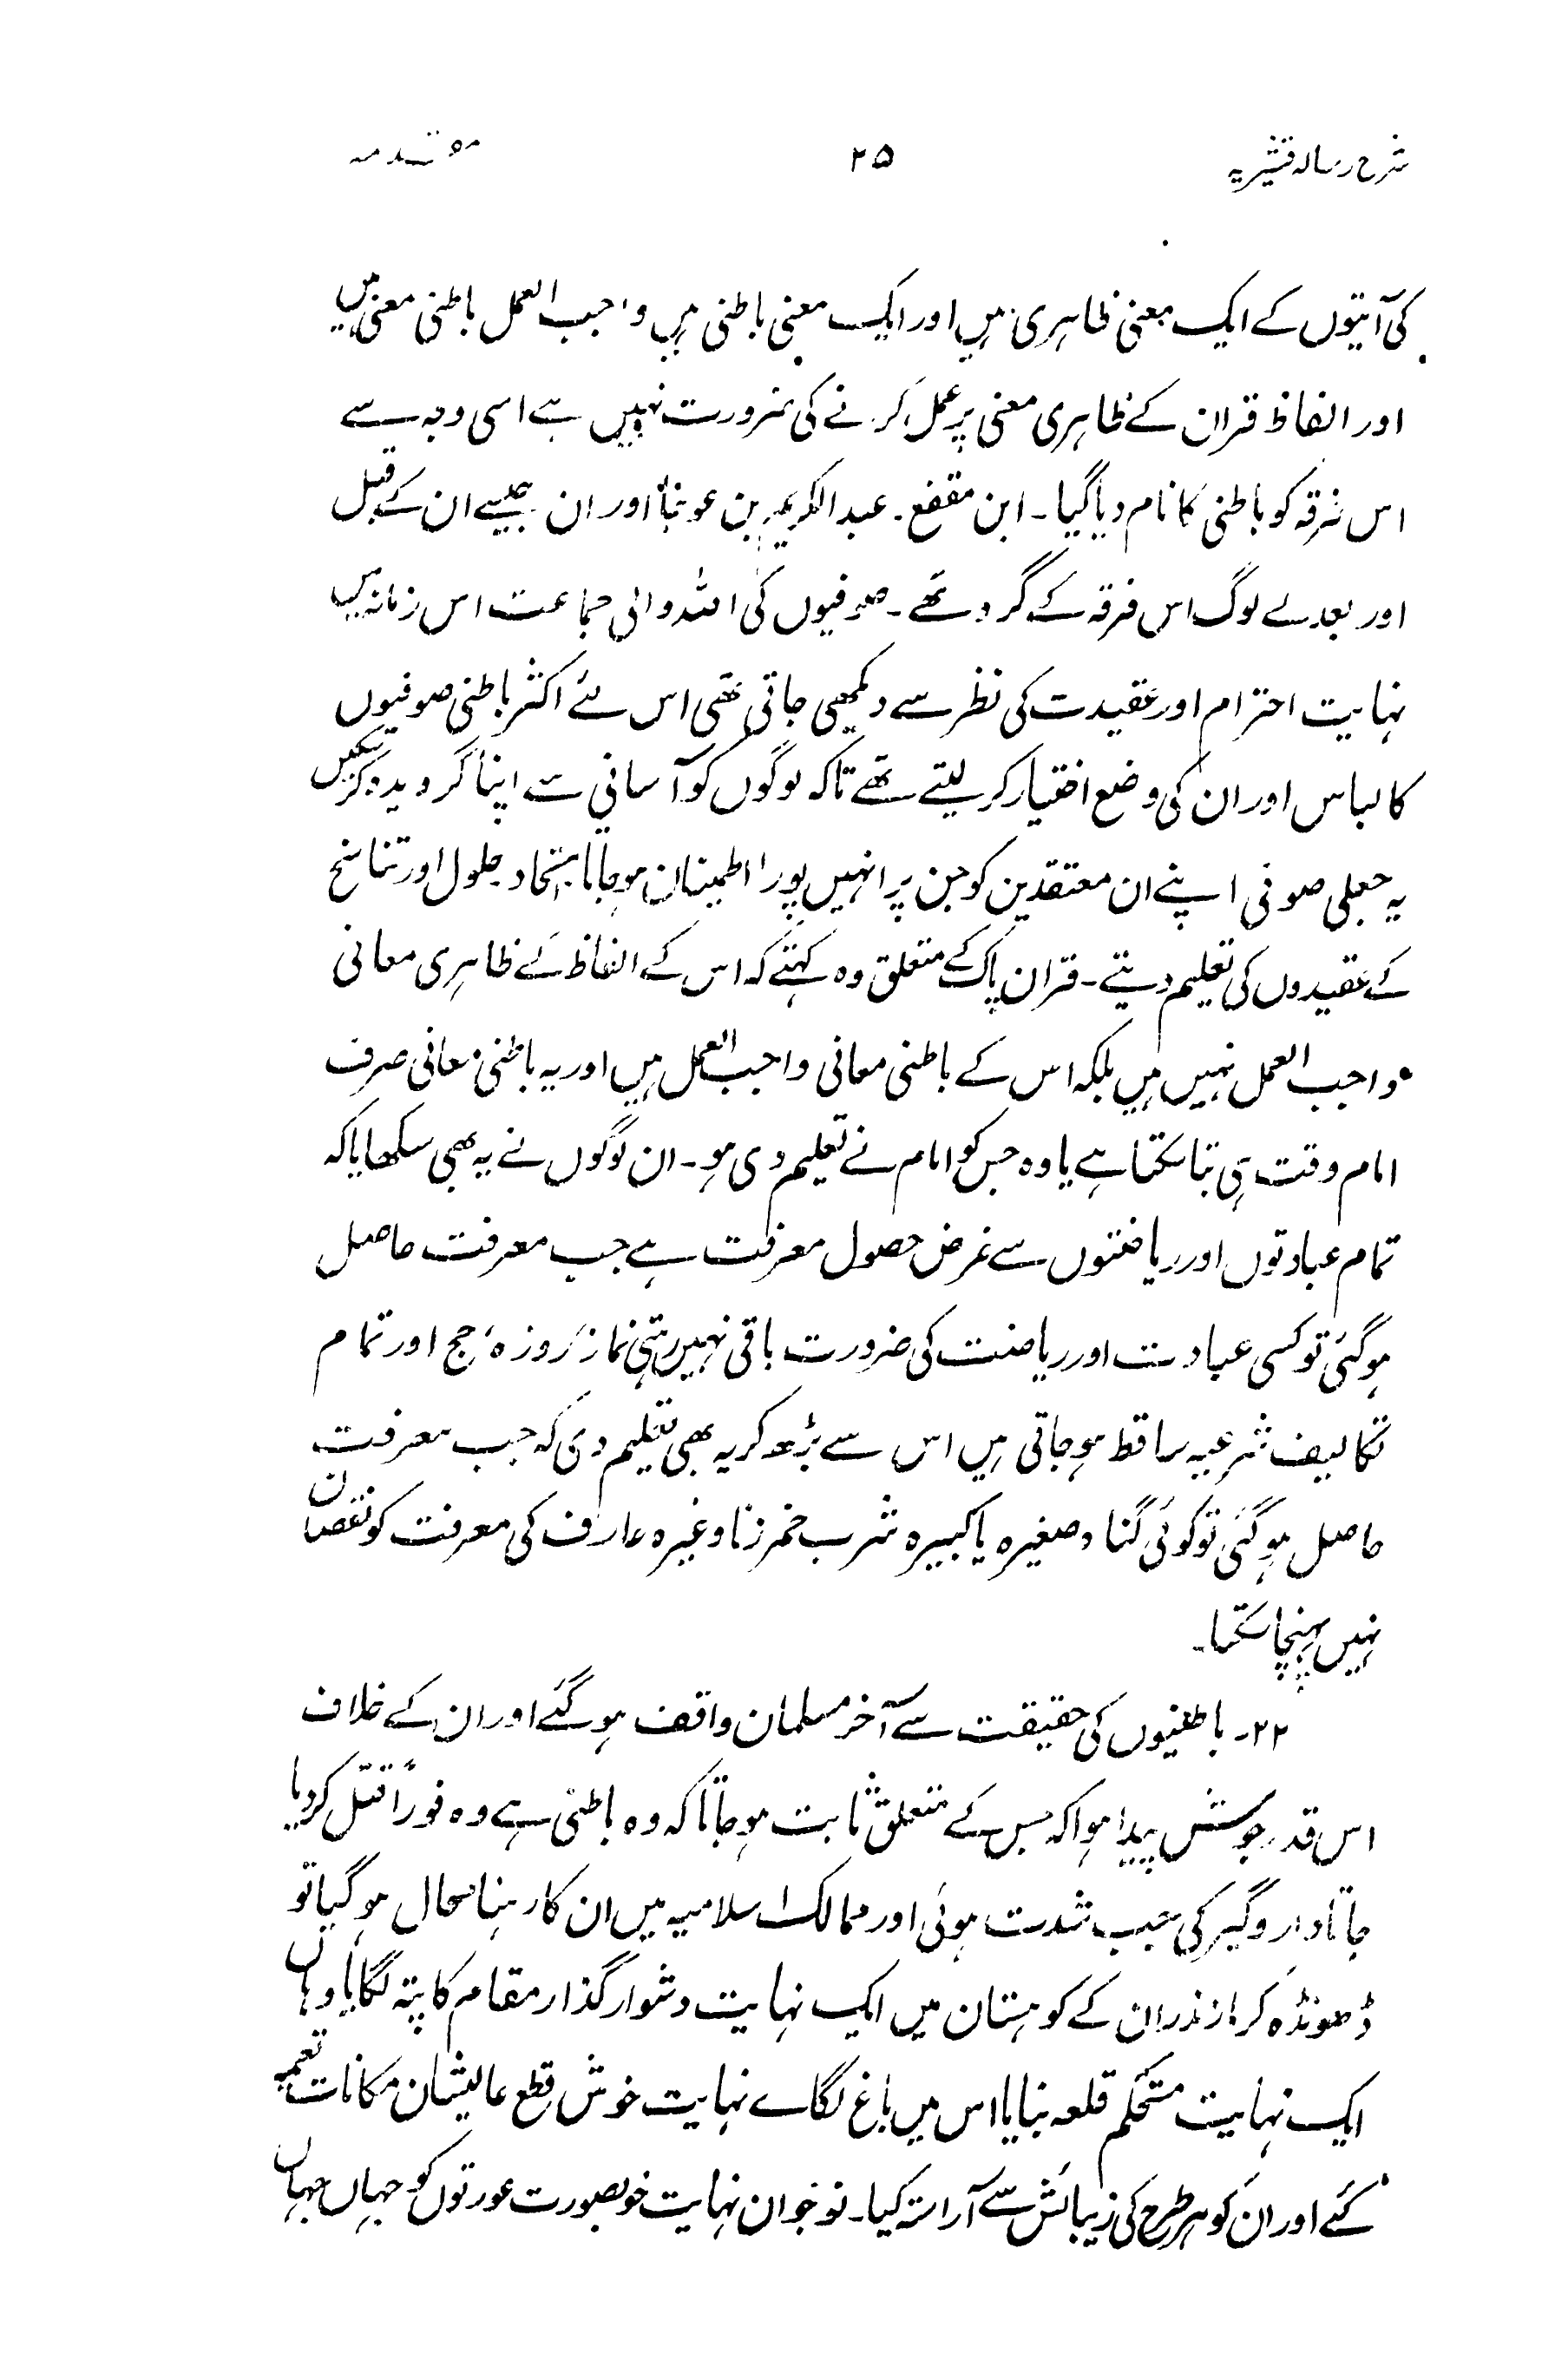 شرح رسالہ قشیریہ ۲۵ مقدمہ
کی آیتوں کے ایک معنی ظاہری ہیں اور ایک معنی باطنی ہیں واجب العمل باطنی معنی ہیں
اور الفاظ قران کے ظاہری معنی پر عمل کرنے کی ضرورت نہیں ہے اسی وجہ سے
اس فرقہ کو باطنی کا نام دیا گیا۔ ابن مقفع۔ عبدالکریم بن عوجا اور ان جیسے ان کے قبل
اور بعد کے لوگ اس فرقہ کے گرو تھے۔ صوفیوں کی اللہ والی جماعت اس زمانہ میں
نہایت احترام اور عقیدت کی نظر سے دیکھی جاتی تھی اس لئے اکثر باطنی صوفیوں
کا لباس اور ان کی وضع اختیار کر لیتے تھے تاکہ لوگوں کو آسانی سے اپنا گرویدہ کر سکیں
یہ جعلی صوفی اپنے ان معتقدین کو جن پر انہیں پورا اطمینان ہو جاتا اتحاد حلول اور تناسخ
کے عقیدوں کی تعلیم دیتے۔ قران پاک کے متعلق وہ کہتے کہ اس کے الفاظ کے ظاہری معانی
واجب العمل نہیں ہیں بلکہ اس کے باطنی معانی واجب العمل ہیں اور یہ باطنی معانی صرف
امام وقت ہی بتا سکتا ہے یا وہ جس کو امام نے تعلیم دی ہو۔ ان لوگوں نے یہ بھی سکھایا کہ
تمام عبادتوں اور ریاضتوں سے غرض حصول معرفت ہے جب معرفت حاصل
ہو گئی تو کسی عبادت اور ریاضت کی ضرورت باقی نہیں رہتی نماز، روزہ، حج اور تمام
تکالیف شرعیہ ساقط ہو جاتی ہیں اس سے بڑھ کر یہ بھی تعلیم دی کہ جب معرفت
حاصل ہو گئی تو کوئی گناہ صغیرہ یا کبیرہ شرب خمر زنا وغیرہ عارف کی معرفت کو نقصان
نہیں پہنچا سکتا۔
۲۲۔ باطنیوں کی حقیقت سے آخر مسلمان واقف ہو گئے اور ان کے خلاف
اس قدر جوش پیدا ہوا کہ جس کے متعلق ثابت ہو جاتا کہ وہ باطنی ہے وہ فوراً قتل کر دیا
جاتا دار و گیر کی جب شدت ہوئی اور ممالک اسلامیہ میں ان کا رہنا محال ہو گیا تو
ڈھونڈھ کر مازندران کے کوہستان میں ایک نہایت دشوار گذار مقام کا پتہ لگایا وہاں
ایک نہایت مستحکم قلعہ بنایا اس میں باغ لگائے نہایت خوش قطع عالیشان مکانات تعمیر
کئے اور ان کو ہر طرح کی زیبائش سے آراستہ کیا۔ نوجوان نہایت خوبصورت عورتوں کو جہاں جہاں